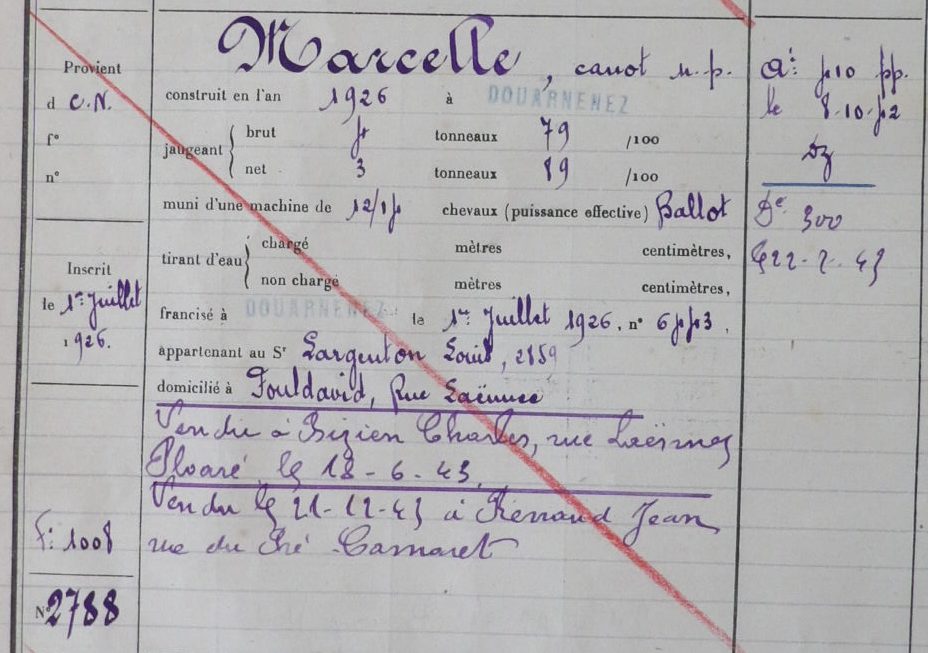 Provient
d C.N.
f°
n°
Inscrit
le 1er Juillet
1926.
F: 1008
N° 2788
Marcelle, canot m.p.
construit en l'an 1926 à DOUARNENEZ
jaugeant
brut 5 tonneaux 79 /100
net 3 tonneaux 89 /100
muni d'une machine de 12/15 chevaux (puissance effective) Ballot
tirant d'eau
chargé mètres centimètres,
non chargé mètres centimètres,
francisé à DOUARNENEZ le 1er Juillet 1926, n° 6553,
appartenant au Sr Largenton Louis, 2859
domicilié à Pouldavid, Rue Laënnec
Vendu à Bizien Charles, rue Laënnec
Ploaré le 18-6-43.
Vendu le 21-12-43 à Renaud Jean
rue du Pré Camaret
a: 510 pp.
le 8.10.52
De 300
le 22-2-43